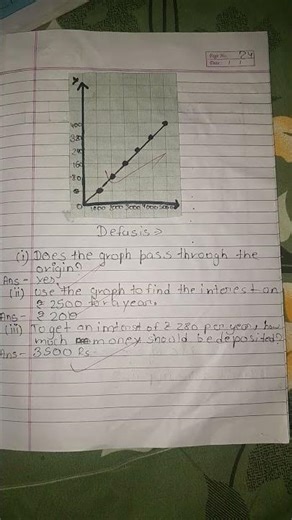 Page No. 24
Date
y
400
320
240
160
80
0
1000 2000 3000 4000 5000
Defasis⇒
(i) Does the graph pass through the
origin?
Ans - Yes!
(ii) use the graph to find the interest on
₹ 2500 for a year.
Ans - ₹ 200
(iii) To get an interest of ₹ 280 per year, how
much money should be deposited?
Ans - 3500 Rs.